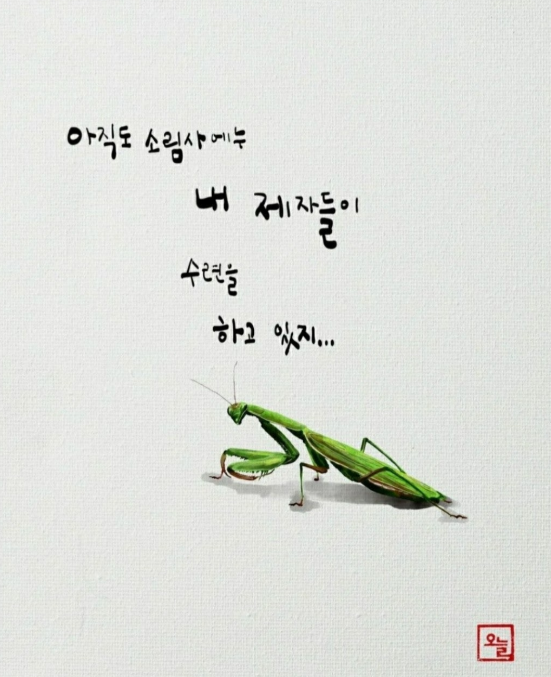 아직도 소림사에는
내 제자들이
수련을
하고 있지...
오늘